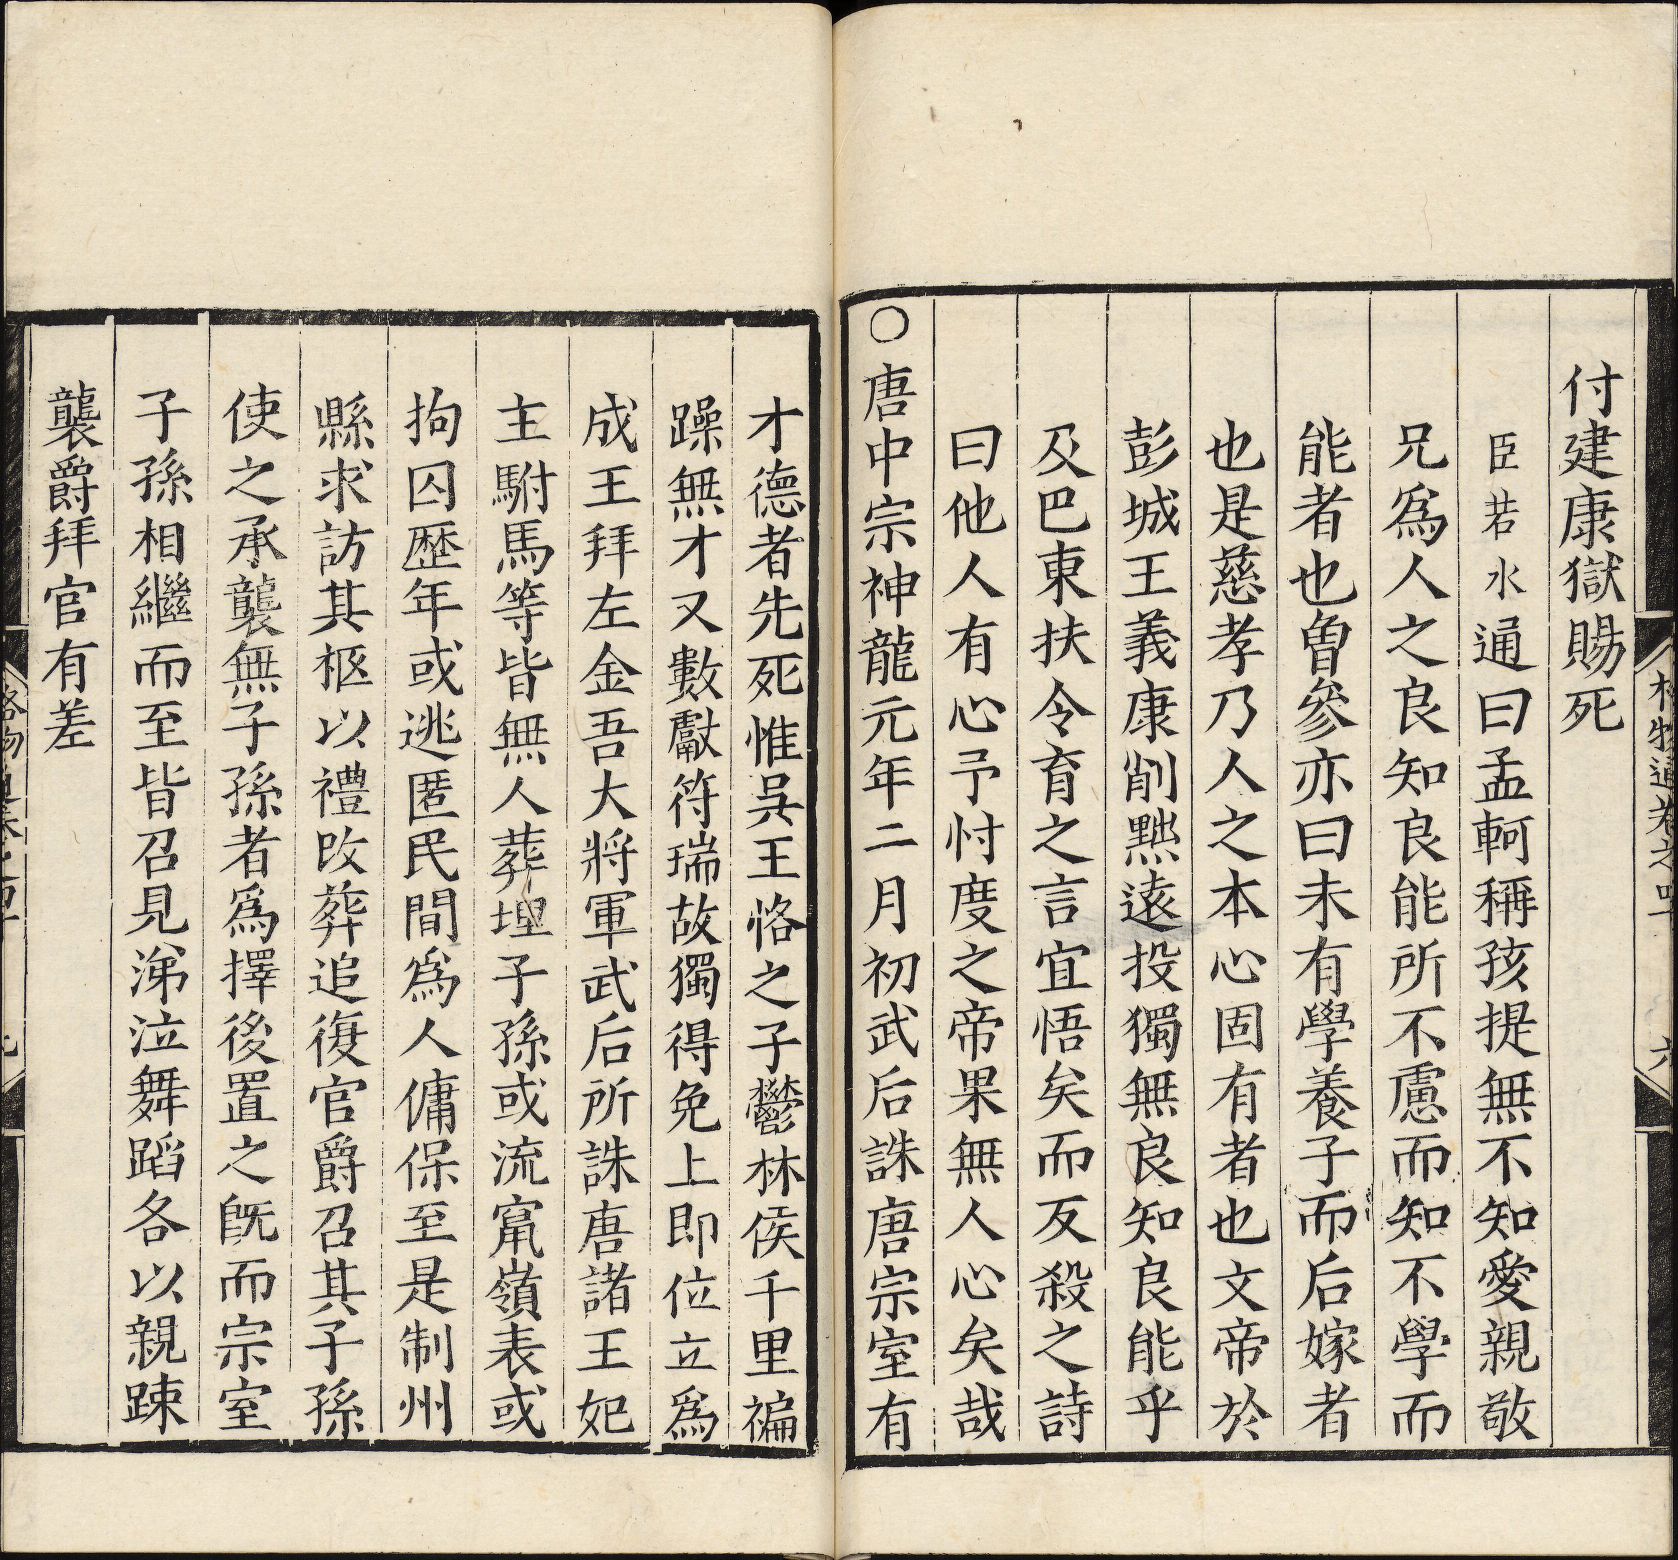 付建康獄賜死
臣若水通曰孟軻稱孩提無不知愛親敬
兄爲人之良知良能所不慮而知不學而
能者也曽參亦曰未有學養子而后嫁者
也是慈孝乃人之本心固有者也文帝於
彭城王義康削黜逺投獨無良知良能乎
及巴東扶令育之言宜悟矣而反殺之詩
曰他人有心予忖度之帝果無人心矣哉
○唐中宗神龍元年二月初武后誅唐宗室有
格物通卷之四十
六
才德者先死惟呉王恪之子鬱林侯千里褊
躁無才又數獻符瑞故獨得免上即位立爲
成王拜左金吾大將軍武后所誅唐諸王妃
主駙馬等皆無人葬埋子孫或流竄嶺表或
拘囚歴年或逃匿民間爲人傭保至是制州
縣求訪其柩以禮改葬追復官爵召其子孫
使之承襲無子孫者爲擇後置之旣而宗室
子孫相繼而至皆召見涕泣舞蹈各以親踈
襲爵拜官有差